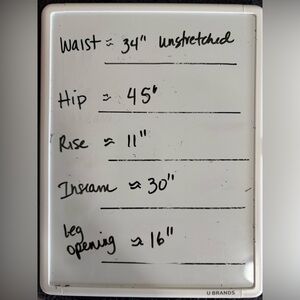 Waist ≈ 34" unstretched
Hip ≈ 45"
Rise ≈ 11"
Inseam ≈ 30"
Leg
opening ≈ 16"
U BRANDS